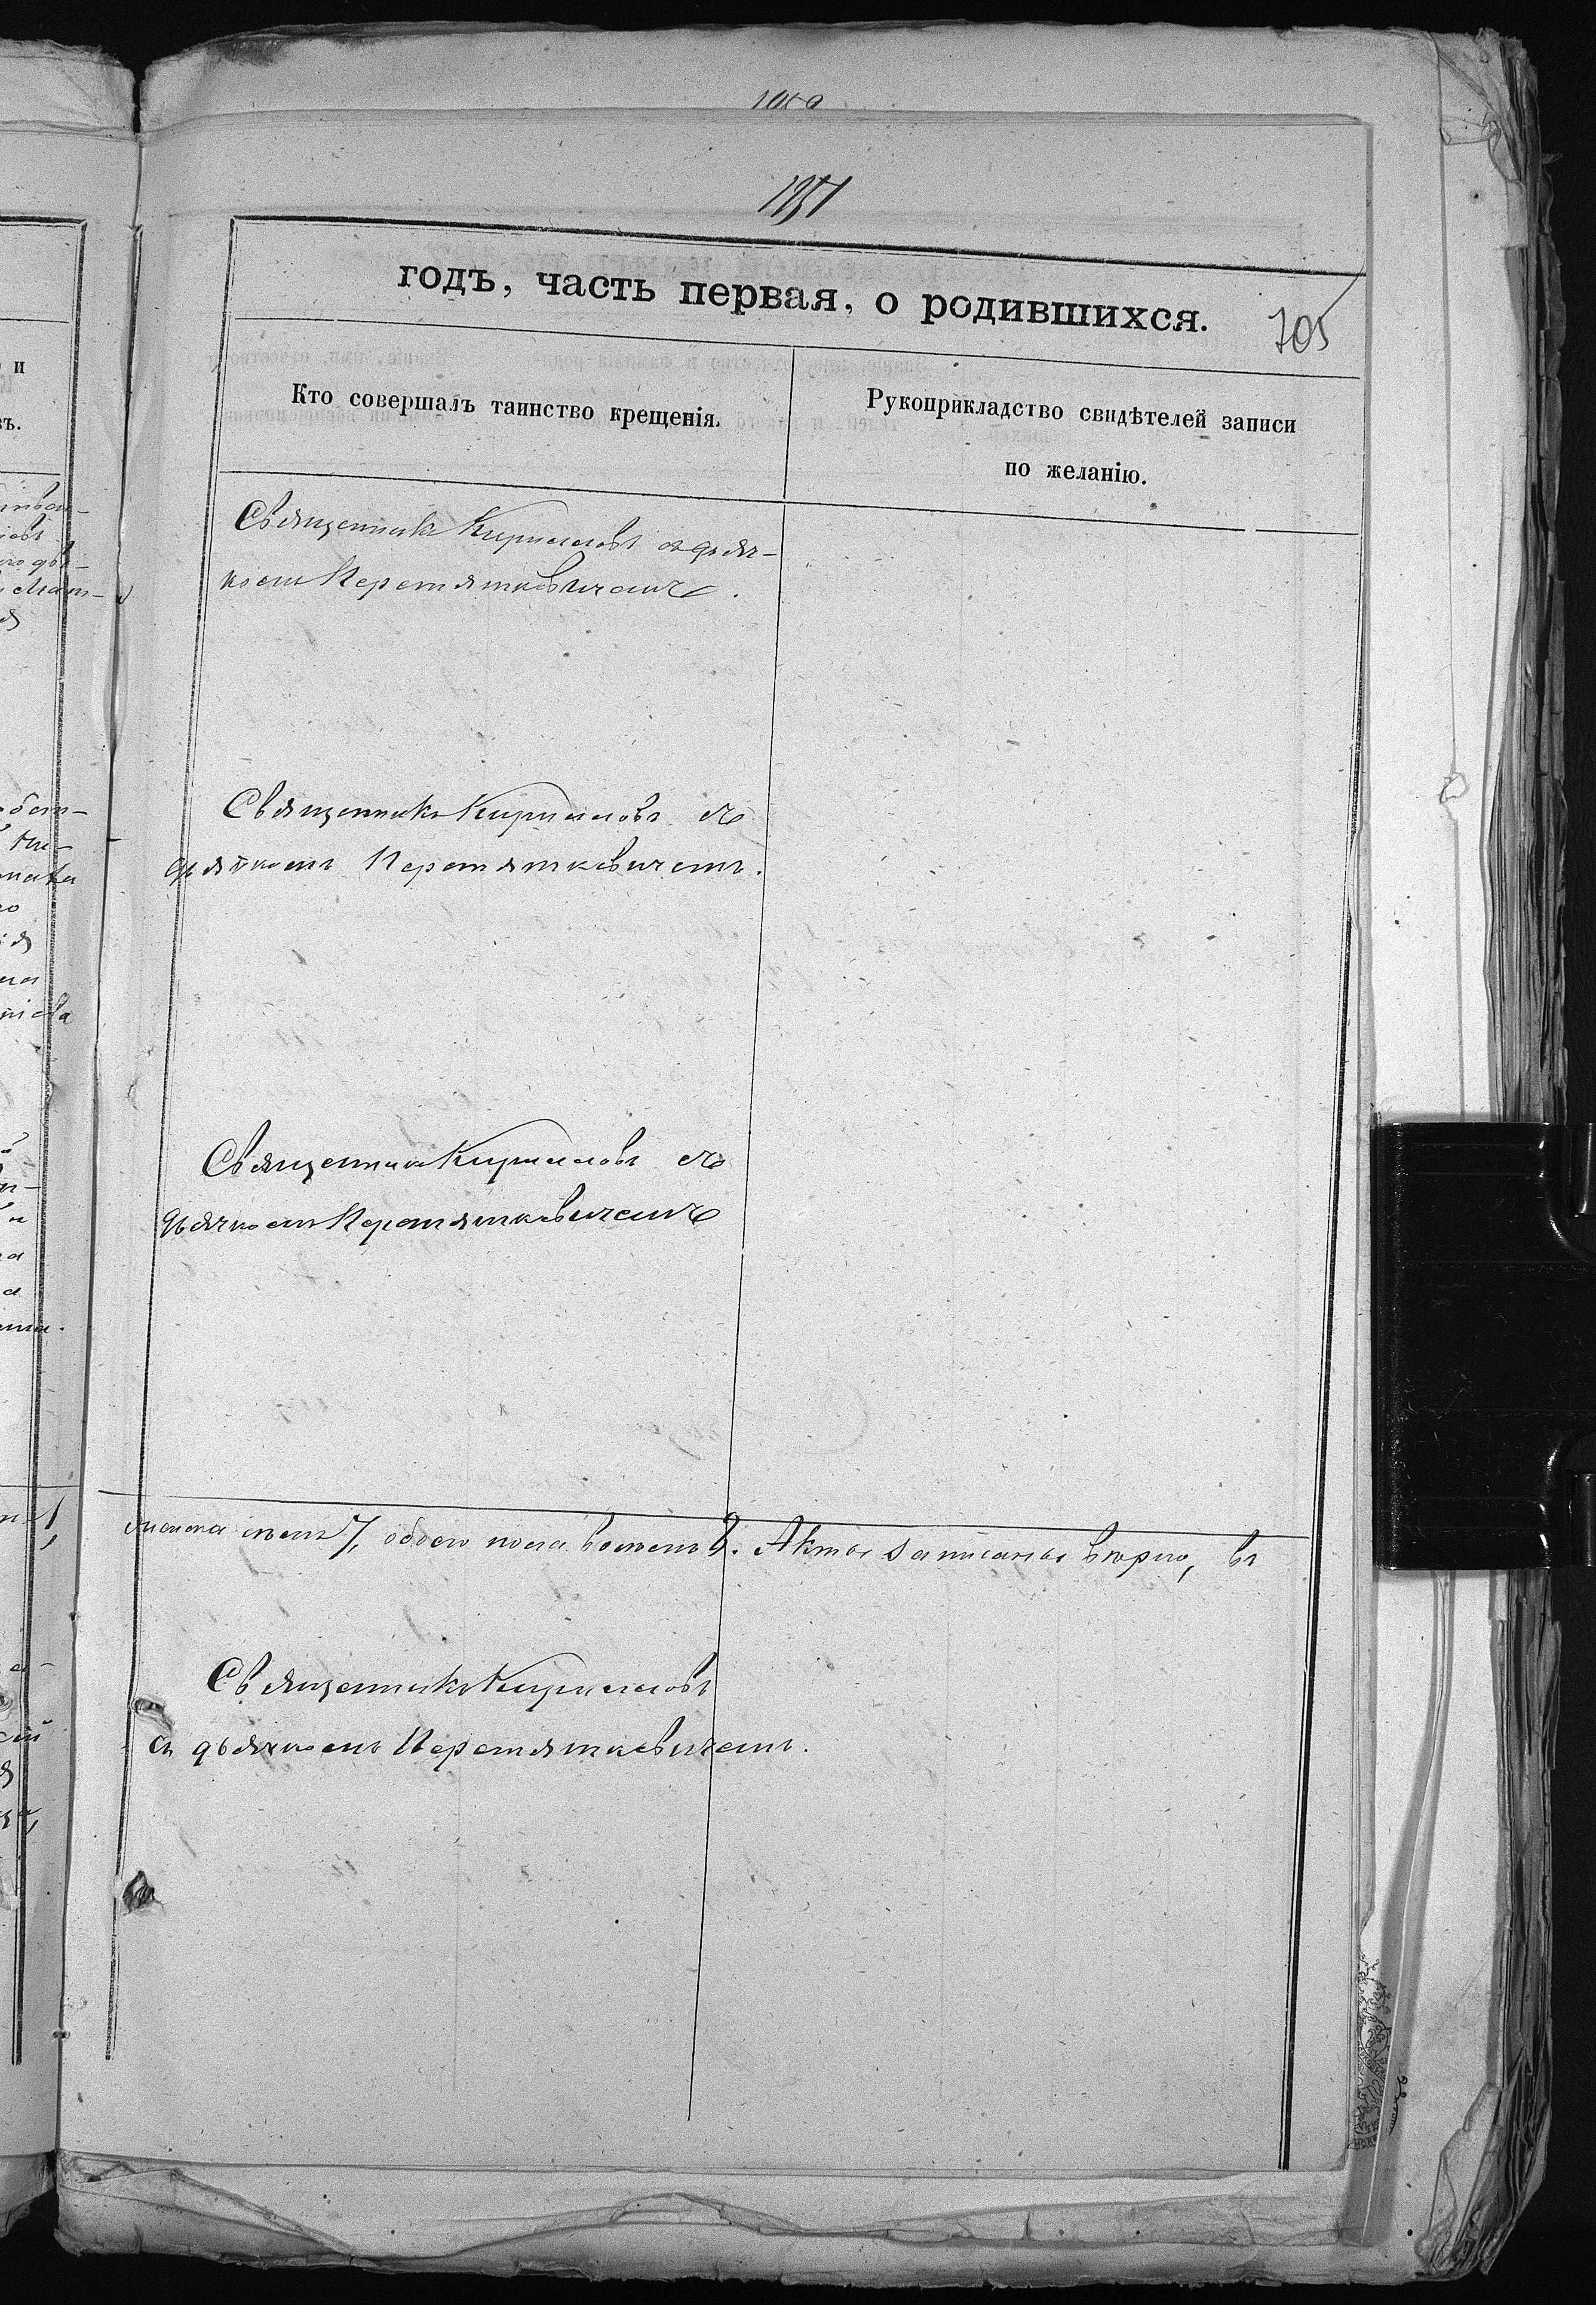 годъ, часть первая, о родившихся.
705
Кто совершалъ таинство крещенія.
Рукоприкладство свидѣтелей записи
по желанію.
Священникъ Кирилловъ съ дьяч-
комъ Перетятковичемъ.
Священникъ Кирилловъ съ
дьячкомъ Перетятковичемъ.
Священникъ Кирилловъ съ
дьячкомъ Перетятковичемъ
семь 7, обоего пола восемь 8. Акты записаны вѣрно, въ
Священникъ Кирилловъ
съ дьячкомъ Перетятковичемъ.